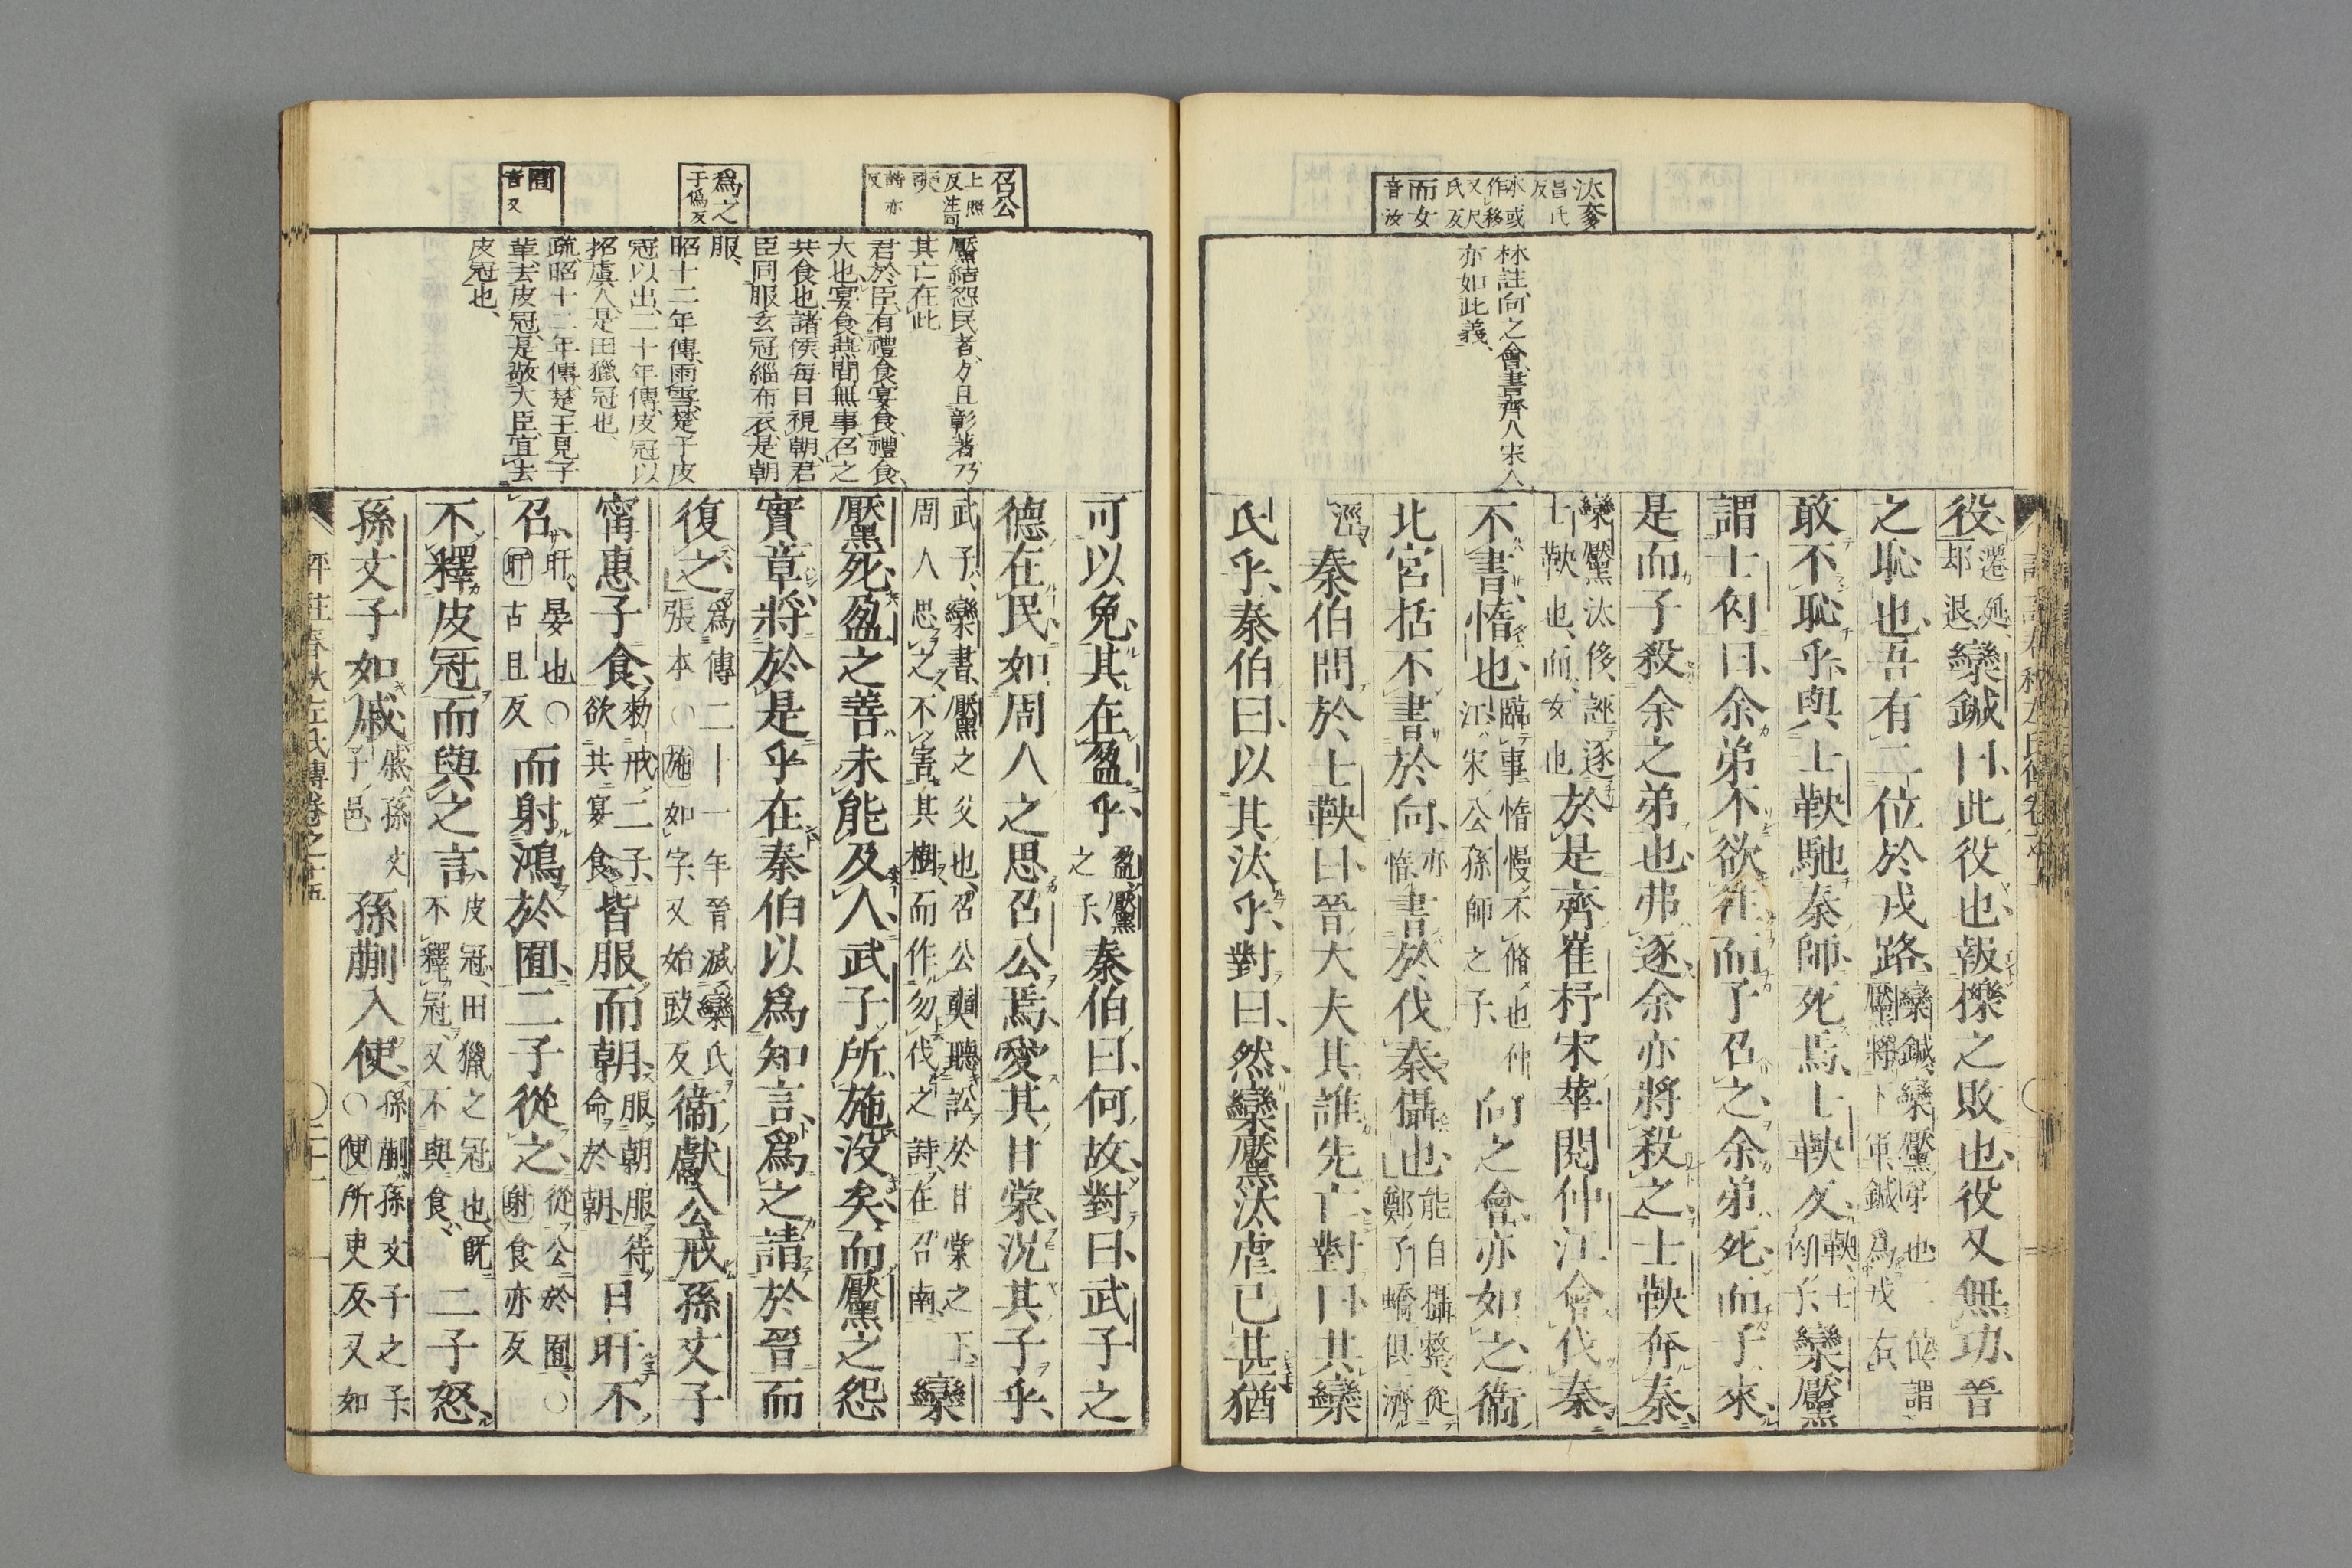 汰奓
昌氏反
本或作移
又尺氏反
而女
音汝
林註、向之會、書齊人宋人、
亦如此義、
役、遷延、却退、欒鍼曰、此役也、報櫟之敗也、役又無功、晉
之恥也、吾有二位於戎路、欒鍼、欒黶弟也、二位、謂黶將下軍、鍼爲戎右、
敢不恥乎、與士鞅馳秦師、死焉、士鞅反、鞅、士匄子、欒黶
謂士匄曰、余弟不欲往、而子召之、余弟死、而子來、
是而子殺余之弟也、弗逐、余亦將殺之、士鞅奔秦、
欒黶汰侈、誣逐士鞅也、而、女也、於是齊崔杼宋華閱仲江會伐秦、
不書、惰也、臨事惰慢不脩也、仲江、宋公孫師之子、向之會亦如之、衞
北宮括不書於向、亦惰、書於伐秦、攝也、能自攝整、從鄭子蟜俱濟
涇、秦伯問於士鞅曰、晉大夫其誰先亡、對曰、其欒
氏乎、秦伯曰、以其汰乎、對曰、然、欒黶汰虐已甚、猶
召公
上照反、注同
奭
詩亦反
爲之
于僞反
囿
音又
黶結怨民者、夕且彰著、乃
其亡在此
君於臣、有禮食宴食、禮食、
大也、宴食、燕閒無事、召之
共食也、諸侯每日視朝、君
臣同服玄冠緇布衣、是朝
服、
昭十二年傳、雨雪、楚子皮
冠以出、二十年傳、皮冠以
招虞人、是田獵冠也、
疏、昭十二年傳、楚王見子
革、去皮冠、是敬大臣、宜去
皮冠也、
可以免、其在盈乎、盈、黶之子、秦伯曰、何故、對曰、武子之
德在民、如周人之思召公焉、愛其甘棠、況其子乎、
武子、欒書、黶之父也、召公奭聽訟於甘棠之下、周人思之、不害其樹、而作勿伐之詩、在召南、欒
黶死、盈之善未能及人、武子所施沒矣、而黶之怨
實章、將於是乎在、秦伯以爲知言、爲之請於晉而
復之、爲傳二十一年晉滅欒氏張本○施如字、又始豉反衞獻公戒孫文子
甯惠子食、勑戒二子、欲共宴食、皆服而朝、服朝服、待命於朝、日旰不
召、旰、晏也○旰古旦反而射鴻於囿、二子從之、從公於囿、○射食亦反
不釋皮冠而與之言、皮冠、田獵之冠也、既不釋冠、又不與食、二子怒、
孫文子如戚、戚、孫文子邑、孫蒯入使、孫蒯、孫文子之子、○使所吏反、又如
評註春秋左氏傳卷之十五